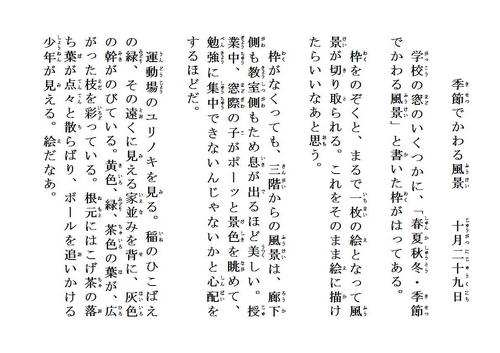 季節でかわる風景　　十月二十九日
学校の窓のいくつかに、「春夏秋冬・季節
でかわる風景」と書いた枠がはってある。
枠をのぞくと、まるで一枚の絵となって風
景が切り取られる。これをそのまま絵に描け
たらいいなあと思う。
枠がなくっても、三階からの風景は、廊下
側も教室側もため息が出るほど美しい。授
業中、窓際の子がポーッと景色を眺めて、
勉強に集中できないんじゃないかと心配を
するほどだ。
運動場のユリノキを見る。稲のひこばえ
の緑、その遠くに見える家並みを背に、灰色
の幹がのびている。黄色、緑、茶色の葉が、広
がった枝を彩っている。根元にはこげ茶の落
ち葉が点々と散らばり、ボールを追いかける
少年が見える。絵だなあ。